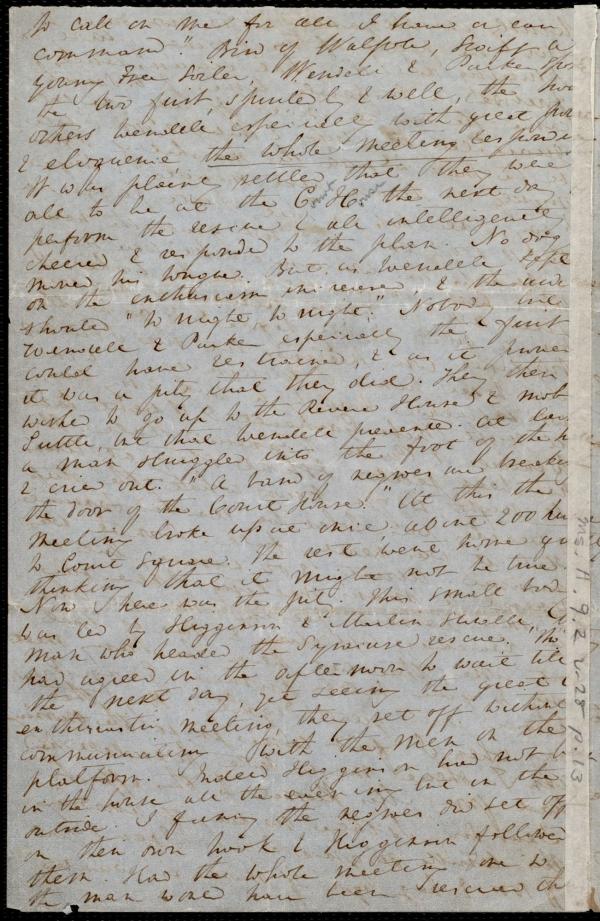 to call on me for all I have or can
command." Bird of Walpole, Swift a
young Free Soiler, Wendell & Parker spoke
the two first, spiritedly & well, the two
others Wendell especially with great power
& eloquence the whole meeting responded
It was plainly settled that they were
all to be at the C. H. the next day
perform the rescue & all intelligence
cheered & responded to the plan. No dog
moved his tongue. But as Wendell
on the enthusiasm increased, & the
shouted "to night to night." Nobody
Wendell & Parker especially the first
could have restrained, & as it proved
it was a pity that they did. They then
wished to go up to the Revere House & mob
Suttle, but that Wendell prevented. At last
a man struggled into the foot of the
& cried out. "A band of negroes are breaking
the door of the Court House." At this the
meeting broke up at once, about 200
to Court Square. The rest went home
thinking that it might not be true.
Now here was the pity. This small
was led by Higginson & Martin Stowell,
man who headed the Syracuse rescue.
had agreed in the afternoon to wait till
the next day, yet seeing the great &
enthusiastic meeting, they set off without
communicating with the men on the
platform. Indeed Higginson had not been
in the house all the evening but in the
outside. I fancy the negroes did set off
on their own hook & Higginson followed
them. Had the whole meeting gone to
the man would have been rescued
Ms. A. 9. 2 v. 28 p. 13